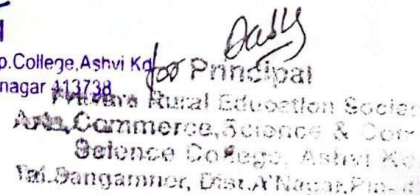 p.College,Ashvi Kd
nagar 413738
for Principal
Rural Education Societ
Arts,Commerce,Science & Com
Science College, Ashvi Kd
Tal.Sangamner, Dist.A'Nagar,Pin-4